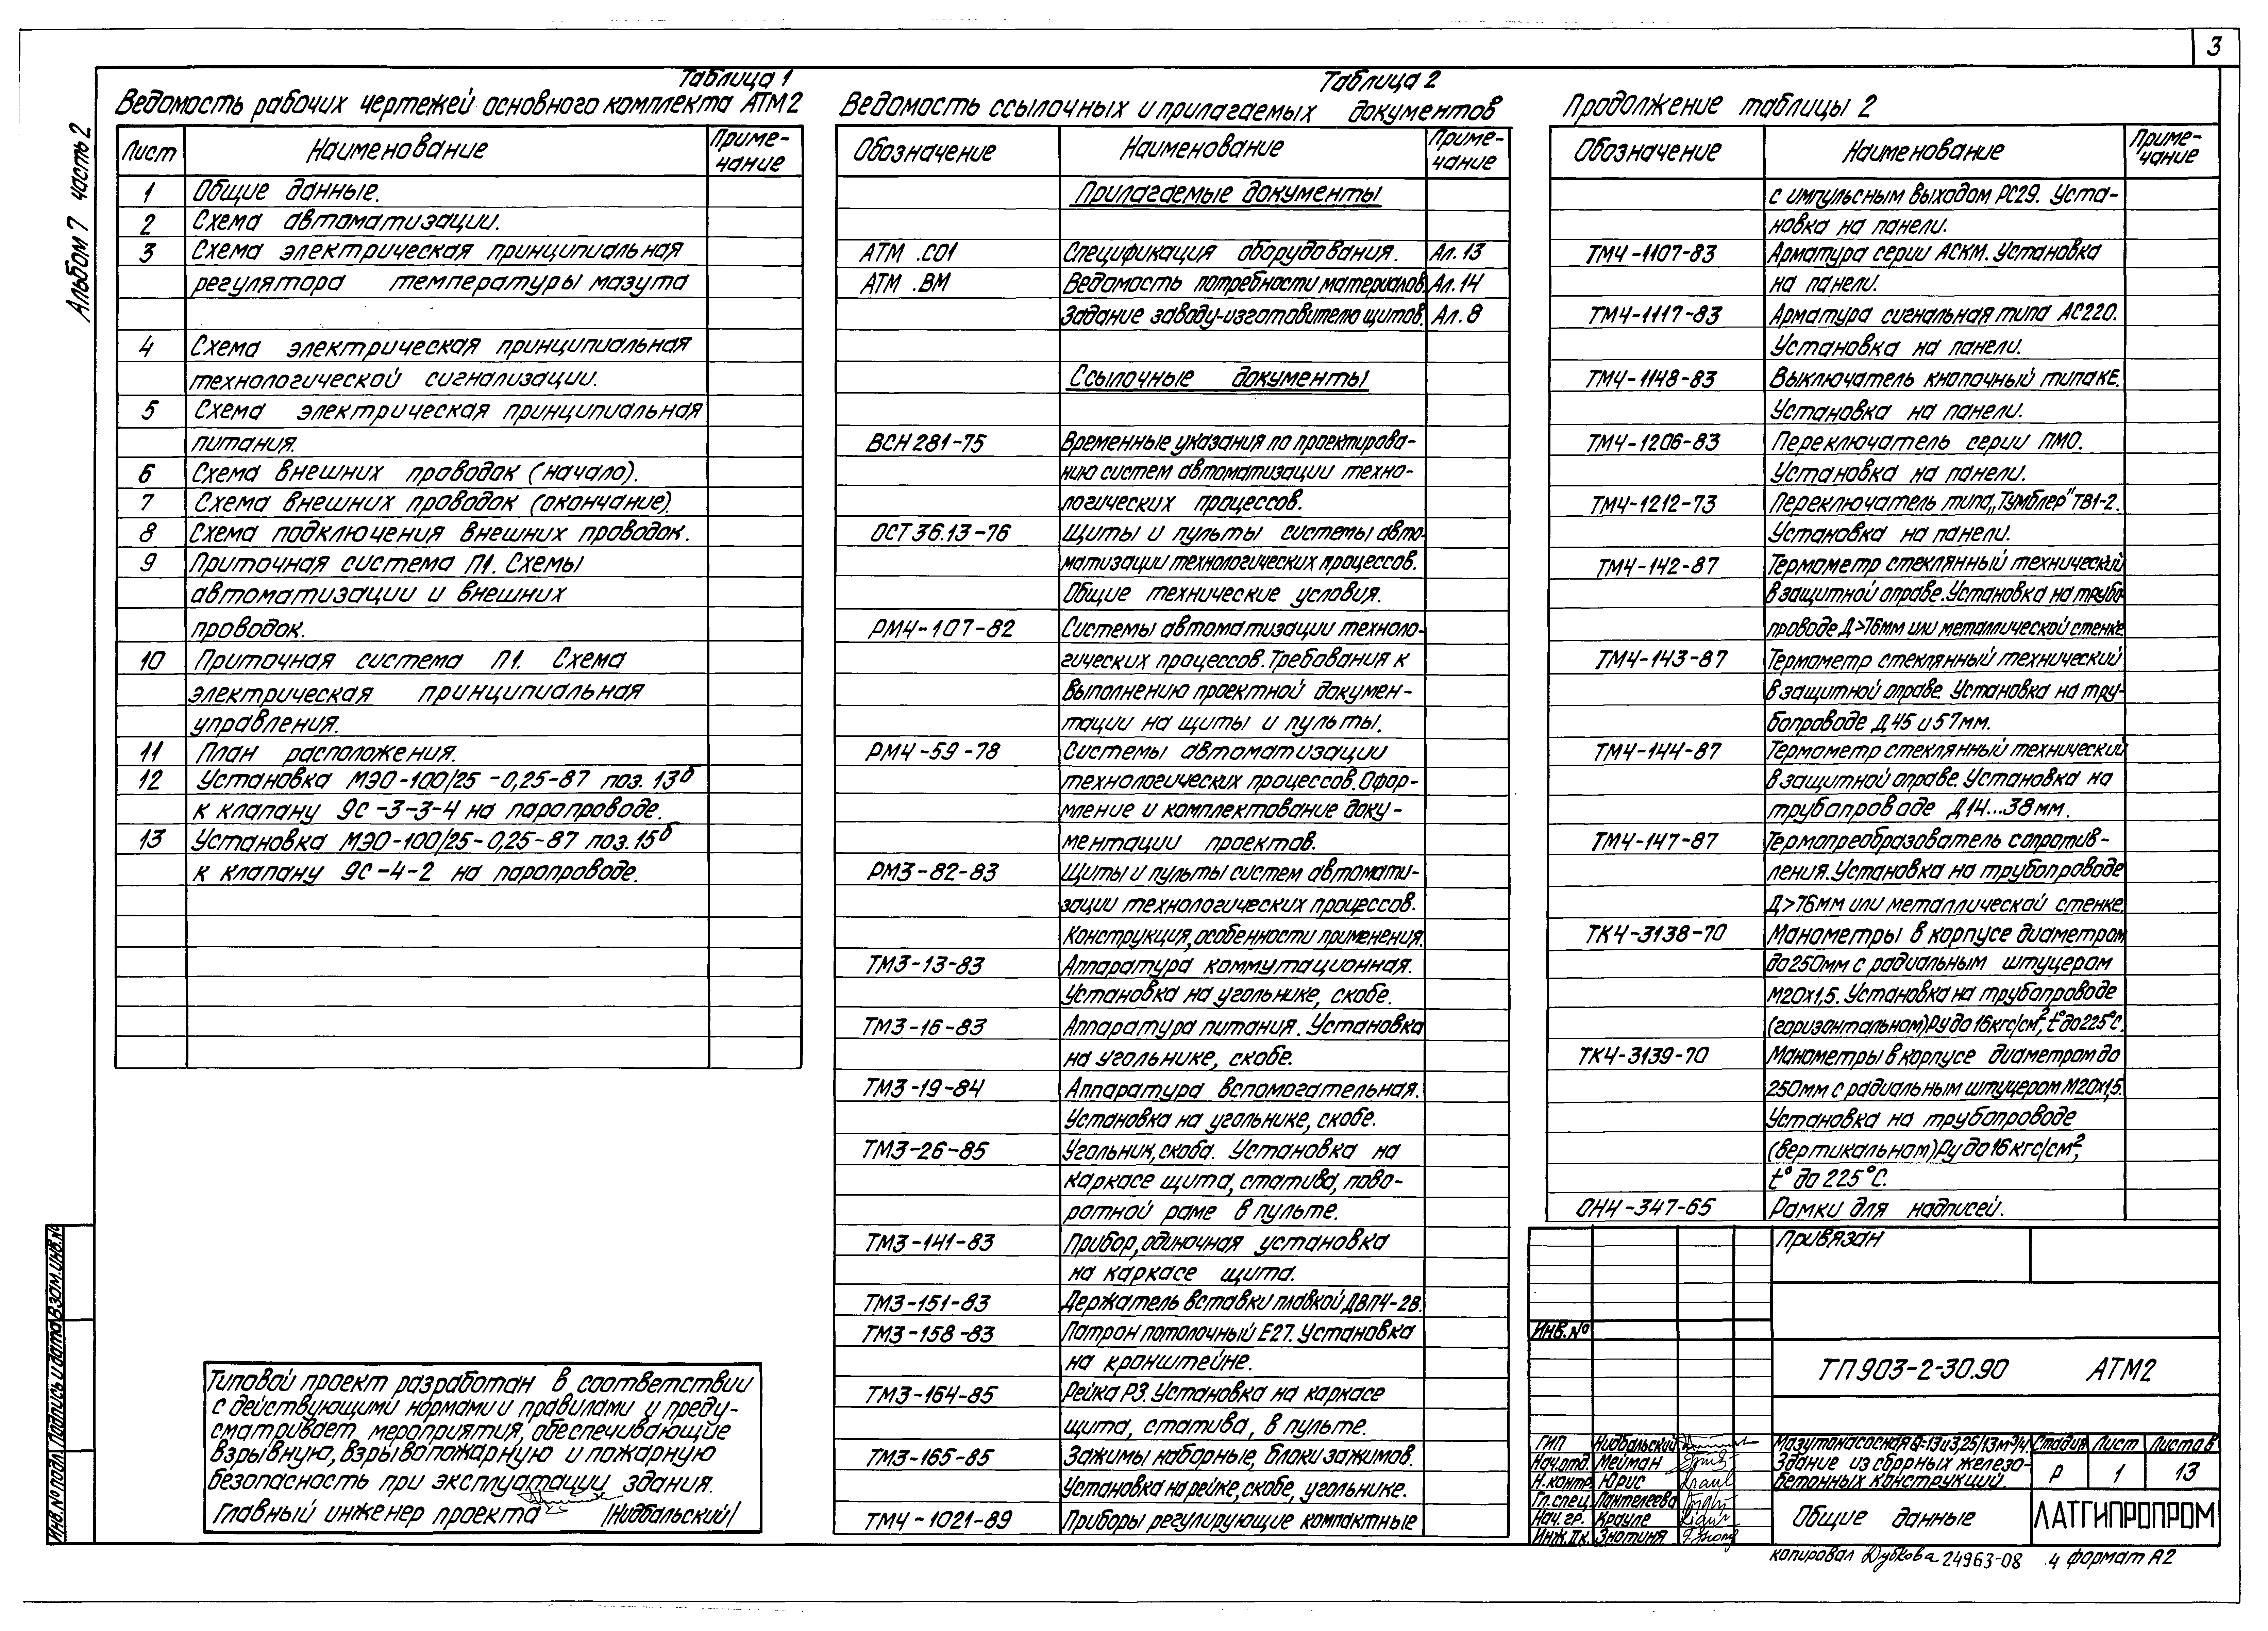 3
Альбом 7 часть 2
Таблица 1
Ведомость рабочих чертежей основного комплекта АТМ2
Лист Наименование Приме-
чание
1 Общие данные.
2 Схема автоматизации.
3 Схема электрическая принципиальная
регулятора температуры мазута
4 Схема электрическая принципиальная
технологической сигнализации.
5 Схема электрическая принципиальная
питания.
6 Схема внешних проводок (начало).
7 Схема внешних проводок (окончание).
8 Схема подключения внешних проводок.
9 Приточная система П1. Схемы
автоматизации и внешних
проводок.
10 Приточная система П1. Схема
электрическая принципиальная
управления.
11 План расположения.
12 Установка МЭО-100/25-0,25-87 поз. 13б
к клапану 9с-3-3-4 на паропроводе.
13 Установка МЭО-100/25-0,25-87 поз. 15б
к клапану 9с-4-2 на паропроводе.
Типовой проект разработан в соответствии
с действующими нормами и правилами и преду-
сматривает мероприятия, обеспечивающие
взрывную, взрывопожарную и пожарную
безопасность при эксплуатации здания.
Главный инженер проекта /Нидбальский/
Таблица 2
Ведомость ссылочных и прилагаемых документов
Обозначение Наименование Приме-
чание
Прилагаемые документы
АТМ .СО1 Спецификация оборудования. Ал. 13
АТМ .ВМ Ведомость потребности материалов. Ал. 14
Задание заводу-изготовителю щитов. Ал. 8
Ссылочные документы
ВСН 281-75 Временные указания по проектирова-
нию систем автоматизации техно-
логических процессов.
ОСТ 36.13-76 Щиты и пульты системы авто-
матизации технологических процессов.
Общие технические условия.
РМ4-107-82 Системы автоматизации техноло-
гических процессов. Требования к
выполнению проектной докумен-
тации на щиты и пульты.
РМ4-59-78 Системы автоматизации
технологических процессов. Офор-
мление и комплектование доку-
ментации проектов.
РМ3-82-83 Щиты и пульты систем автомати-
зации технологических процессов.
Конструкция, особенности применения.
ТМ3-13-83 Аппаратура коммутационная.
Установка на угольнике, скобе.
ТМ3-16-83 Аппаратура питания. Установка
на угольнике, скобе.
ТМ3-19-84 Аппаратура вспомогательная.
Установка на угольнике, скобе.
ТМ3-26-85 Угольник, скоба. Установка на
каркасе щита, статива, пово-
ротной раме в пульте.
ТМ3-141-83 Прибор, одиночная установка
на каркасе щита.
ТМ3-151-83 Держатель вставки плавкой ДВП4-2В.
ТМ3-158-83 Патрон потолочный Е27. Установка
на кронштейне.
ТМ3-164-85 Рейка Р3. Установка на каркасе
щита, статива, в пульте.
ТМ3-165-85 Зажимы наборные, блоки зажимов.
Установка на рейке, скобе, угольнике.
ТМ4-1021-89 Приборы регулирующие компактные
Продолжение таблицы 2
Обозначение Наименование Приме-
чание
с импульсным выходом РС29. Уста-
новка на панели.
ТМ4-1107-83 Арматура серии АСКМ. Установка
на панели.
ТМ4-1117-83 Арматура сигнальная типа АС220.
Установка на панели.
ТМ4-1148-83 Выключатель кнопочный типа КЕ.
Установка на панели.
ТМ4-1206-83 Переключатель серии ПМО.
Установка на панели.
ТМ4-1212-73 Переключатель типа „Тумблер" ТВ1-2.
Установка на панели.
ТМ4-142-87 Термометр стеклянный технический
в защитной оправе. Установка на трубо-
проводе Д>76мм или металлической стенке.
ТМ4-143-87 Термометр стеклянный технический
в защитной оправе. Установка на тру-
бопроводе Д 45 и 57мм.
ТМ4-144-87 Термометр стеклянный технический
в защитной оправе. Установка на
трубопроводе Д14...38мм.
ТМ4-147-87 Термопреобразователь сопротив-
ления. Установка на трубопроводе
Д>76мм или металлической стенке.
ТК4-3138-70 Манометры в корпусе диаметром
до 250мм с радиальным штуцером
М20х1,5. Установка на трубопроводе
(горизонтальном) Ру до 16 кгс/см², t° до 225°С.
ТК4-3139-70 Манометры в корпусе диаметром до
250мм с радиальным штуцером М20х1,5.
Установка на трубопроводе
(вертикальном) Ру до 16 кгс/см²,
t° до 225°С.
ОН4-347-65 Рамки для надписей.
Привязан
Инв. №
ТП 903-2-30.90 АТМ2
ГИП Нидбальский
Нач.отд. Мейман
Н.контр. Юрис
Гл.спец. Пантелеева
Нач.гр. Крауле
Инж. IIк. Знотиня
Мазутонасосная Q=13 и 3,25/13м³/ч.
Здание из сборных железо-
бетонных конструкций.
Стадия Лист Листов
Р 1 13
Общие данные
ЛАТГИПРОПРОМ
копировал Дубкова 24963-08 4 формат А2
Инв.№подл. Подпись и дата Взам.инв.№